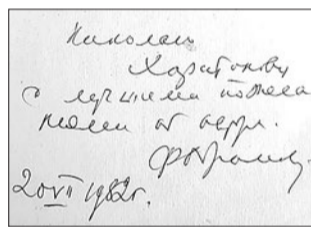 Николаю
Харитонову
с лучшими пожела
ниями от автора.
20 VII 1982г.